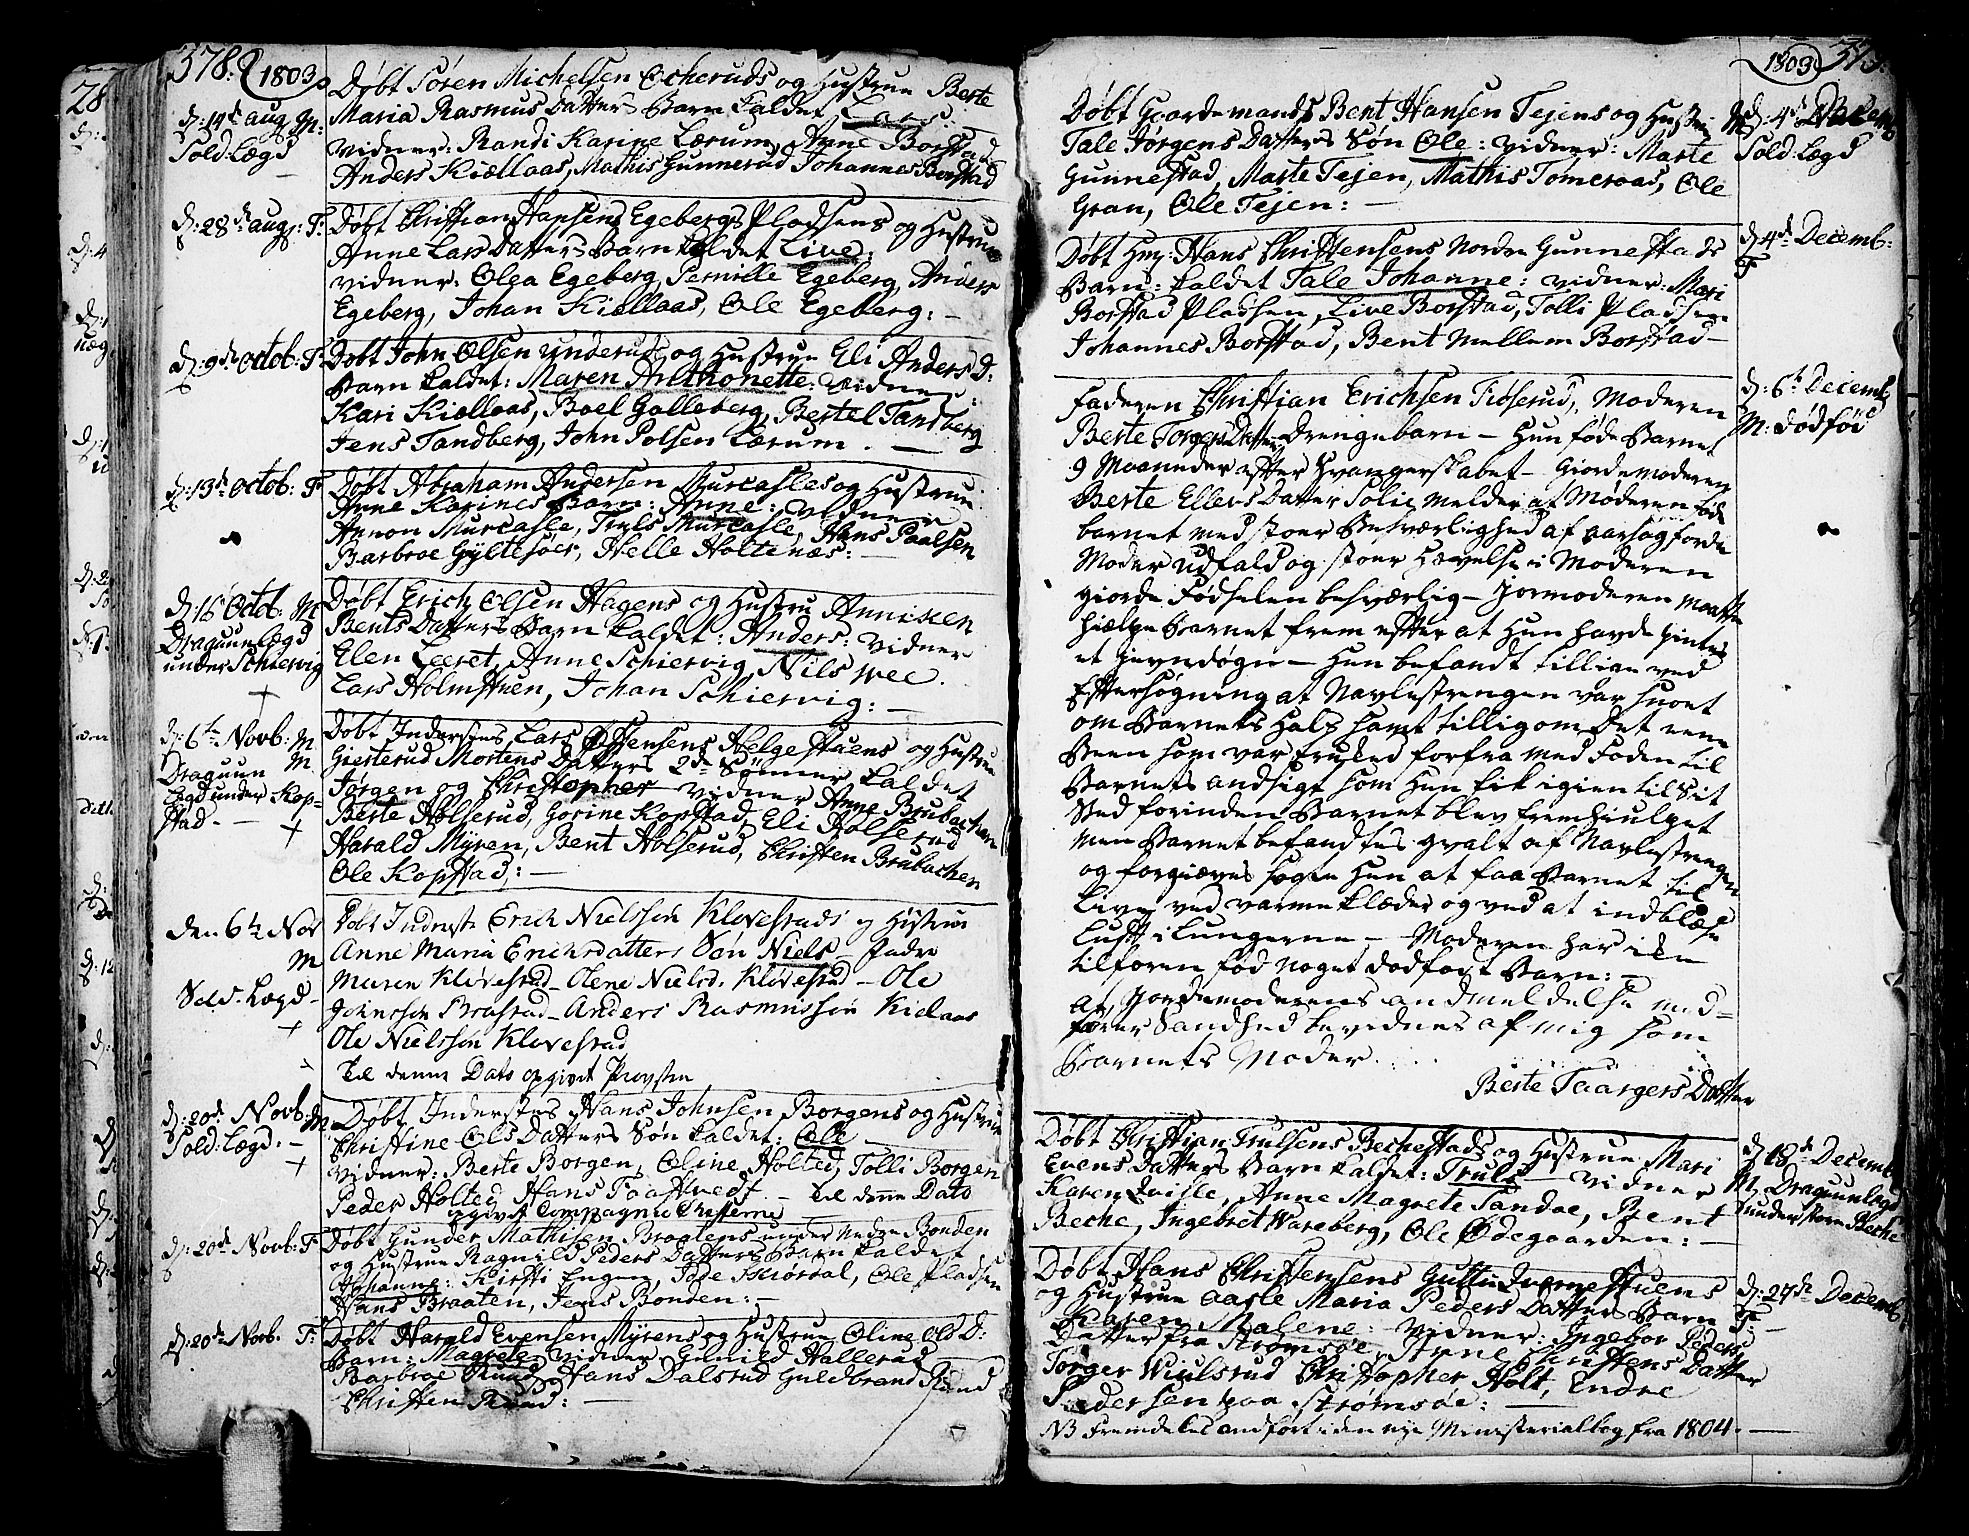 378. 1803.
d: 14de aug M: Døbt Søren Michelsen Echeruds og Hustrue Berte
Sold: Lægd Maria Rasmus Datters Barn kaldet Lars:
Vidner: Randi Karine Lærum, Anne Borstad
Anders Kiøllaas, Mathis Gunnerud Johannes Borstad
d: 28de aug: F: Døbt Christian Hansens Egebergs Pladsens og Hustrue
Anne Lars Datters Barn kaldet Live:
vidner: Olea Egeberg, Pernille Egeberg, Anders
Egeberg, Johan Kiøllaas, Ole Egeberg: —
d: 9de Octob: F: Døbt John Olsen Underuds og Hustrue Eli Anders D:
Barn kaldet: Maren Anthonette: vidner:
Kari Kiøllaas, Boel Golleberg, Bertel Tandberg
Jens Tandberg, John Polsen Lærum. —
d: 13de Octob: F Døbt Abraham Andersen Murcasles og Hustrue
Anne Karines Barn: Anne: vidner
Annon Murcasle, Truls Murcasle, Hans Paalsen
Barbroe Gyltesøer, Helle Holtenæs: —
d: 16 Octob: M Døbt Erich Olsen Hagens og Hustru Annichen
Draguun Lægd Bents Datters Barn kaldet: Anders: vidner
under Schiervig Elen Leeret, Anne Schiervig Nils wee.
+ Lars Holmstuen, Johan Schiervig: —
d: 6te Novb: M Døbt Inderstens Lars Ottensens Helgestuens og Hustrue
Draguun M Gierterud Mortens Datters 2de Sønner kaldet
Lægd under Kop- Jørgen og Christopher vidner Anne Brubachen
stad. — + Berte Holserud, Gorine Kopstad, Eli Holserud
Harald Myren, Bent Holserud, Christen Brubachen
Ole Kopstad: —
den 6te Nov Døbt Inderste Erich Nielssøn Klovestads og Hustrue
M Anne Maria Erichsdatters Søn Niels — Fadre
Maren Kløvestad — Olene Nielsd. Kløvestad — Ole
Sold: Lægd — Johnssøn Brastad — Anders Rasmussøn Kiølaas
+ Ole Nielssøn Klovestad
til denne Dato opgivet Provsten
d: 20de Novb: M Døbt Inderstes Hans Johnsen Borgens og Hustrue
Sold: Lægd. — Christine Ols Datters Søn kaldet: Ole —
+ Vidner: Berte Borgen, Oline Holted, Tolli Borgen
Peder Holted Hans Taaftvedt — til denne Dato
opgivet Compagnie Chefferne
d: 20de Novb: F Døbt Gunder Mathisen Braatens under Nedre Bonden
og Hustrue Ragnild Peders Datters Barn kaldet
Johanne: Kirsti Engen, Tore Skiørdal, Ole Pladsen
Hans Braaten, Jens Bonden: —
d: 20de Novb. F: Døbt Harald Evensen Myrens og Hustrue Oline Ols D:
Barn: Magrete vidner Gunild Hallerud
Barbroe Ruud, Hans Dalsrud Guldbrand Ruud
Christen Ruud: —
1803. 379.
Døbt Gaardemands Bent Hansen Tejens og Hustru M d: 4de Decemb
Tale Jørgens Datters Søn Ole: vidner: Marte Sold: Lægd
Gunnestad, Marte Tejen, Mathis Tømeraas, Ole
Gran, Ole Tejen: —
Døbt Huy: Hans Christensens Norden Gunnestads d: 4de Decemb:
Barn: kaldet Tale Johanne: vidner: Mari F
Borstad Pladsen, Live Borstad, Tolli Pladsen
Johannes Borstad, Bent Mellem Borstad —
Faderen Christian Erichsen Tiøserud, Moderen d: 6te Decemb
Berte Torgers Datter Drengebarn — Hun føde Barnet M: dødfød
9 Maaneder efter Svangerskabet — Giordemoderen
Berte Ellevs Datter Solie melder at Moderen føde
barnet med stoer Besværlighed af aarsag fordi
Moder udfald og stoer Hævelse i Moderen
giorde Fødselen besværlig — Jormoderen maatte
hielpe Barnet frem efter at Hun havde pintes
et Jevndøgn — Hun befandt tillige ved
Eftersøgning at Navlestrengen var snoet
om Barnets Hals samt tillig om Det eene
Been som var trukked forfra med Foden til
Barnets andsigt som Hun fik igien til sit
Sted forinden Barnet blev fremhiulpet
men Barnet befandtes qvalt af Navlestrengen
og forgieves søgte Hun at faa Barnet til
Live ved varme klæder og ved at indblæse
Luft i Lungerne — Moderen har ikke
tilforen fød noget dødfødt Barn: —
At Jordemoderens andmeldelse med-
fører Sandhed bevidnes af mig som
Barnets Moder.
Berte Taargers Datter
Døbt Christian Trulsens Bechestads og Hustrue Mari d: 18de Decemb
Evens Datters Barn kaldet: Truls — vidner M. Draguunlægd
Karen Qvisle, Anne Magrete Sandoe, Bent under store Beche
Beche, Ingebret Wareberg, Ole Ødegaarden: —
Døbt Hans Christensens Guttu Qvernestuens d: 27de Decemb:
og Hustrue Aasle Maria Peders Datters Barn F —
Karen Malene: vidner: Ingebor Peders
Datter fra Strømsøe, Anne Christens Datter
Torger Wiulsrud Christopher Holt, Endre
Pedersen paa Strømsøe: —
NB Fremdeles andført i den nye Ministerialbog fra 1804. —